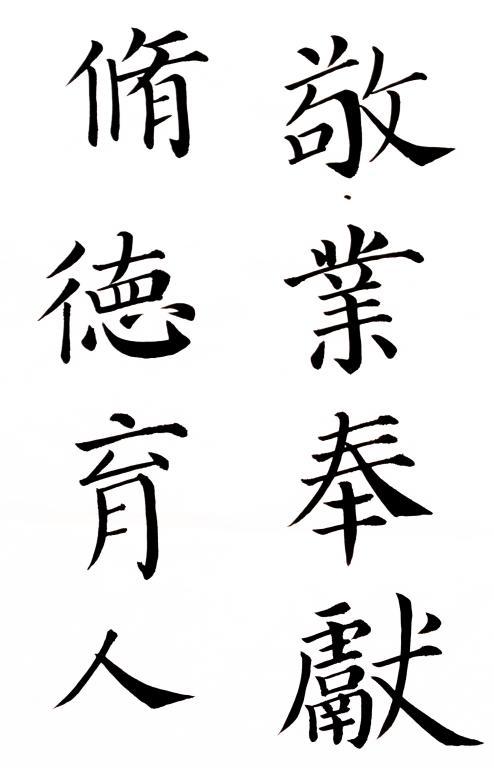 敬業奉獻
脩德育人